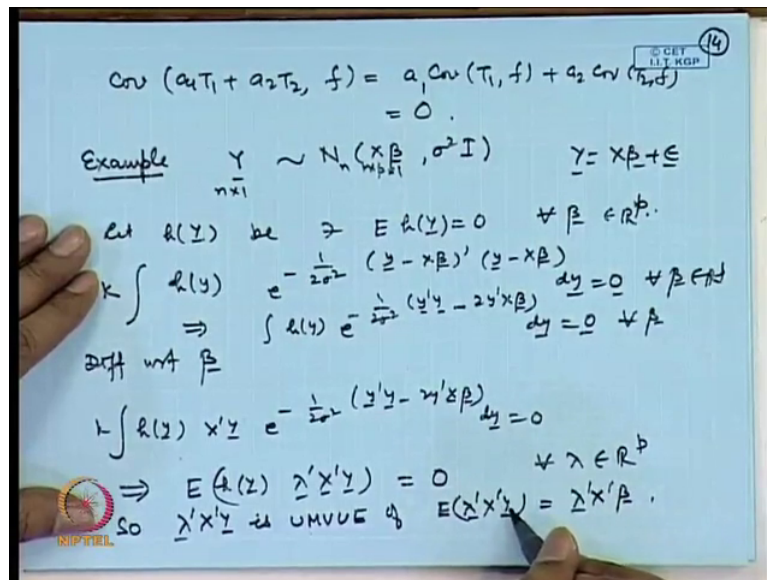 14
© CET
I.I.T. KGP
Cov (a1T1 + a2T2, f) = a1 Cov (T1, f) + a2 Cov (T2, f)
= 0 .
Example Y ~ Nn (Xβ, σ² I) Y = Xβ + ϵ
n×1 n×p p×1
Let h(Y) be ∋ E h(Y) = 0 ∀ β ∈ ℝᵖ.
k ∫ h(y) e^{- 1/2σ² (y - xβ)' (y - xβ)} dy = 0 ∀ β ∈ ℝᵖ
⇒ ∫ h(y) e^{- 1/2σ² (y'y - 2y'xβ)} dy = 0 ∀ β
Diff wrt β
k ∫ h(y) x'y e^{- 1/2σ² (y'y - 2y'xβ)} dy = 0
⇒ E(h(Y) λ'X'Y) = 0 ∀ λ ∈ ℝᵖ
So λ'X'Y is UMVUE of E(λ'X'Y) = λ'X'β .
NPTEL